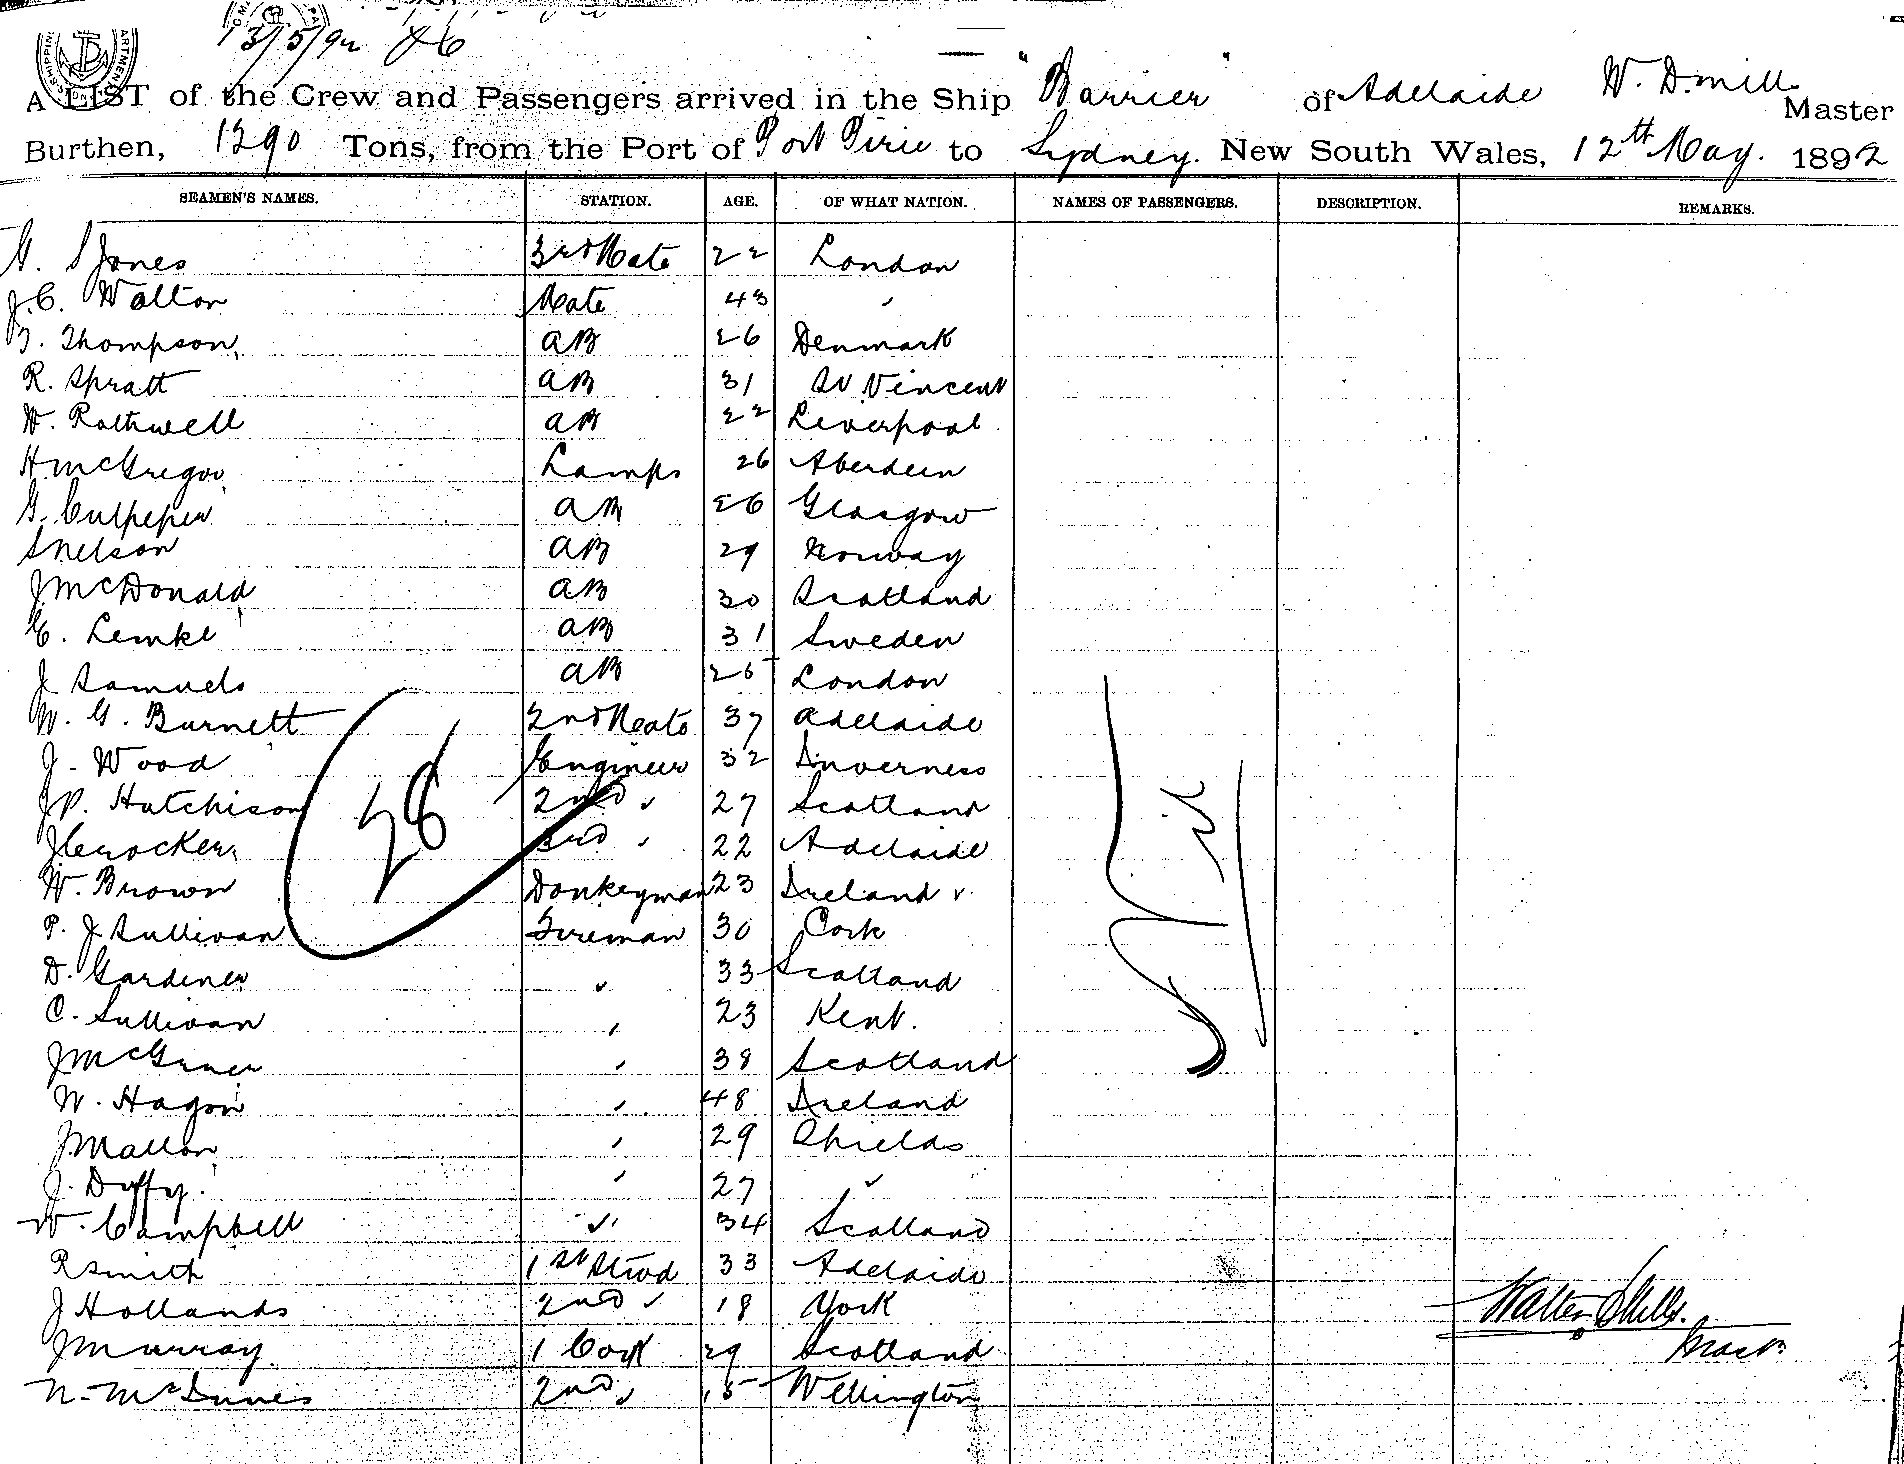 13/5/92
A LIST of the Crew and Passengers arrived in the Ship "Barrier" of Adelaide W. D. Mills Master
Burthen, 1290 Tons, from the Port of Port Pirie to Sydney. New South Wales, 12th May. 1892
SEAMEN'S NAMES. STATION. AGE. OF WHAT NATION. NAMES OF PASSENGERS. DESCRIPTION. REMARKS.
S Jones 3rd Mate 22 London
J.C. Walton Mate 43 "
Thompson AB 26 Denmark
R. Spratt AB 31 St Vincent
W. Rothwell AB 22 Liverpool
H McGregor Lamps 26 Aberdeen
G. Culpeper AB 26 Glasgow
S Nelson AB 29 Norway
J McDonald AB 30 Scotland
E. Lemke AB 31 Sweden
J Samuels AB 25 London
W. G. Burnett 2nd Mate 37 Adelaide
J. Wood Engineer 32 Inverness
J P. Hutchison 2nd " 27 Scotland
J Crocker 3rd " 22 Adelaide
W. Brown Donkeyman 23 Ireland
P. J Sullivan Fireman 30 Cork
D. Gardiner " 33 Scotland
C. Sullivan " 23 Kent.
J " 38 Scotland
W. Hagon " 48 Ireland
J Mallon " 29 Shields
J. Duffy. " 27 "
W. Campbell " 34 Scotland
R Smith 1st Stwd 33 Adelaide
J Hollands 2nd " 18 York
J Murray 1 Cook 29 Scotland
N. McInnes 2nd " 15 Wellington
28
Nil
Walter D Mills.
Master